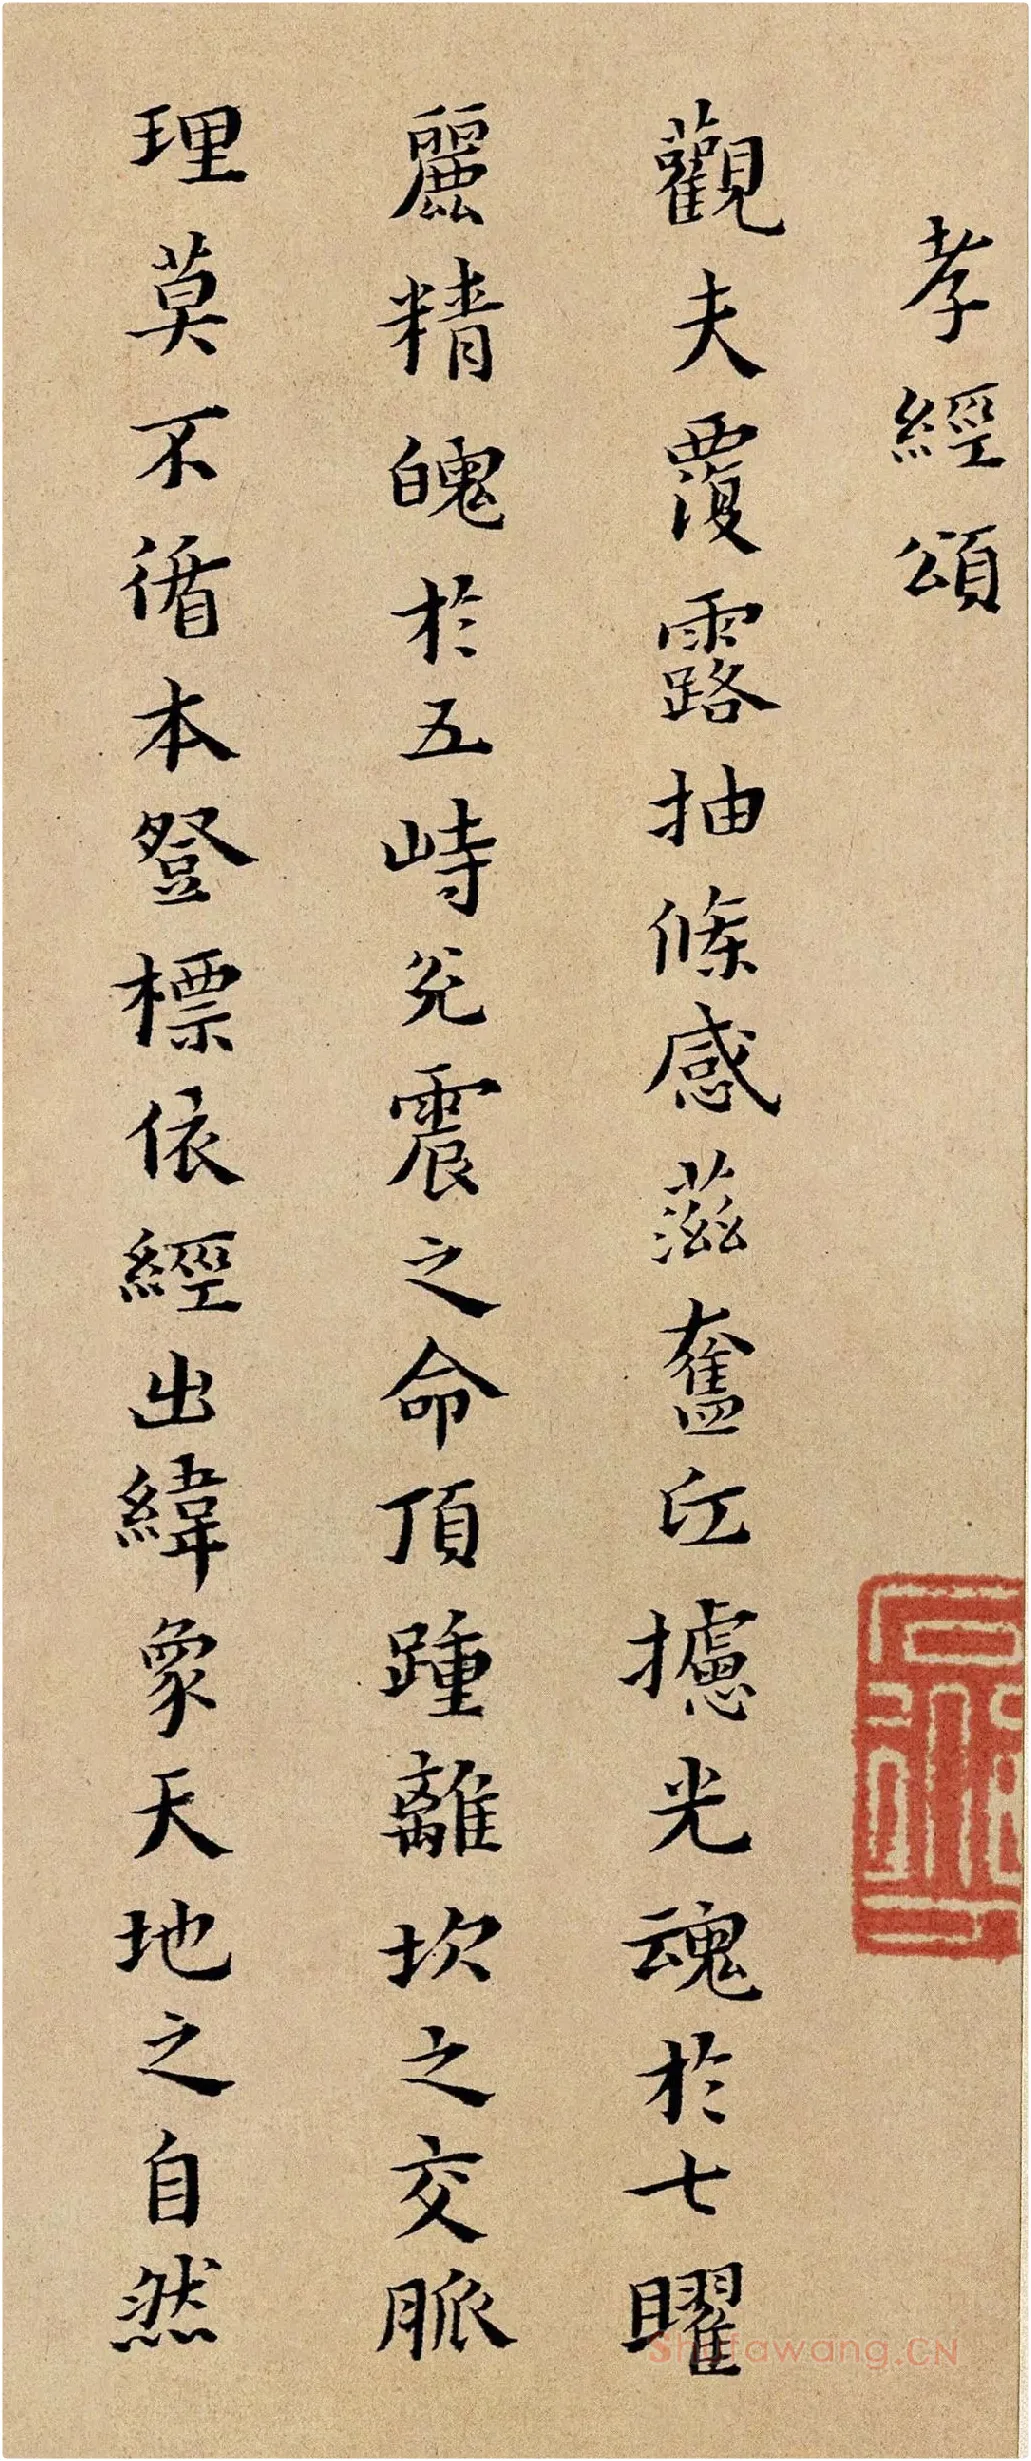 孝經頌
觀夫覆露抽條感蒞奮丘攄光魂於七曜
麗精魄於五峙兊震之命頂踵離坎之交脈
理莫不循本登標依經出緯象天地之自然
Shufawang.CN